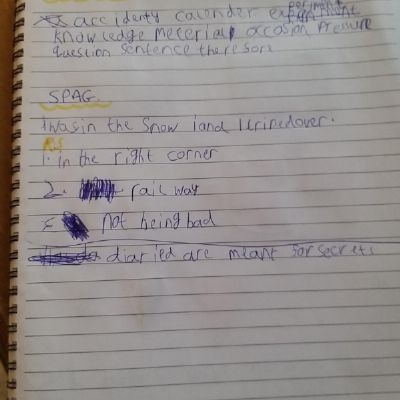 accidenty calender experiment
knowledge meterial occasion pressure
question sentence theresore
SPAG.
I was in the snow and I tripedover.
1. in the right corner
2. railway
not being bad
diaried are meant for secrets